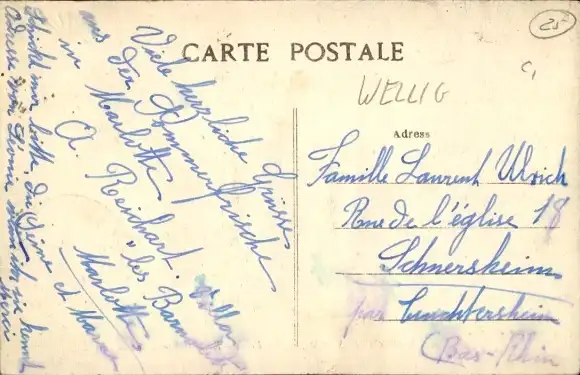 CARTE POSTALE
25
WELLIG
Adress
Famille Laurent Ulrich
Rue de l'église 18
Schnersheim
par Truchtersheim
(Bas-Rhin
Viele herzliche Grüsse
aus der Sommerfrische
in Marlotte
A. Reichart. Villa
"les
Marlotte
Schickt mir bitte, die
Adresse von
merci